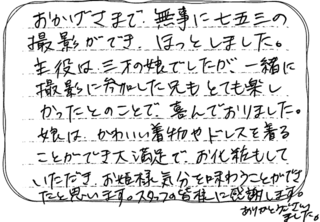 おかげさまで、無事に七五三の
撮影ができ、ほっとしました。
主役は三才の娘でしたが、一緒に
撮影に参加した兄もとても楽し
かったとのことで、喜んでおりました。
娘は、かわいい着物やドレスを着る
ことができ大満足で、お化粧もして
いただき、お姫様気分を味わうことができ
たと思います。スタッフの皆様に感謝します。
ありがとうござい
ました。